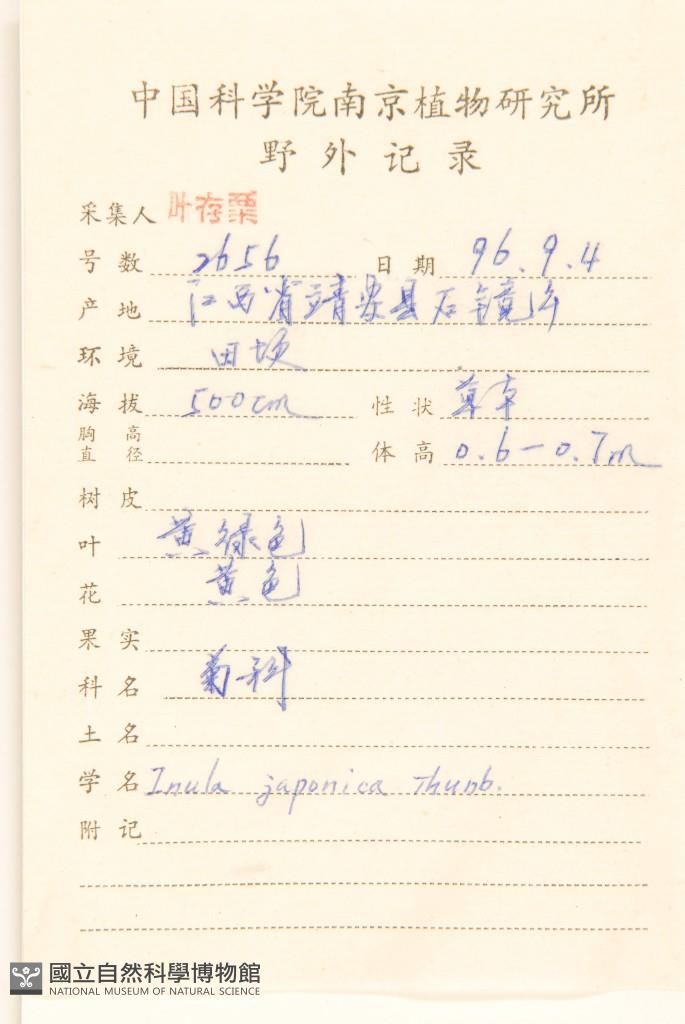 中国科学院南京植物研究所
野外记录
采集人 叶存粟
号数 2656 日期 96.9.4
产地 江西省靖安县石镜
环境 田坝
海拔 500cm 性状 草本
胸高直径 体高 0.6-0.7m
树皮
叶 黄绿色
花 黄色
果实
科名 菊科
土名
学名 Inula japonica Thunb.
附记
國立自然科學博物館
NATIONAL MUSEUM OF NATURAL SCIENCE